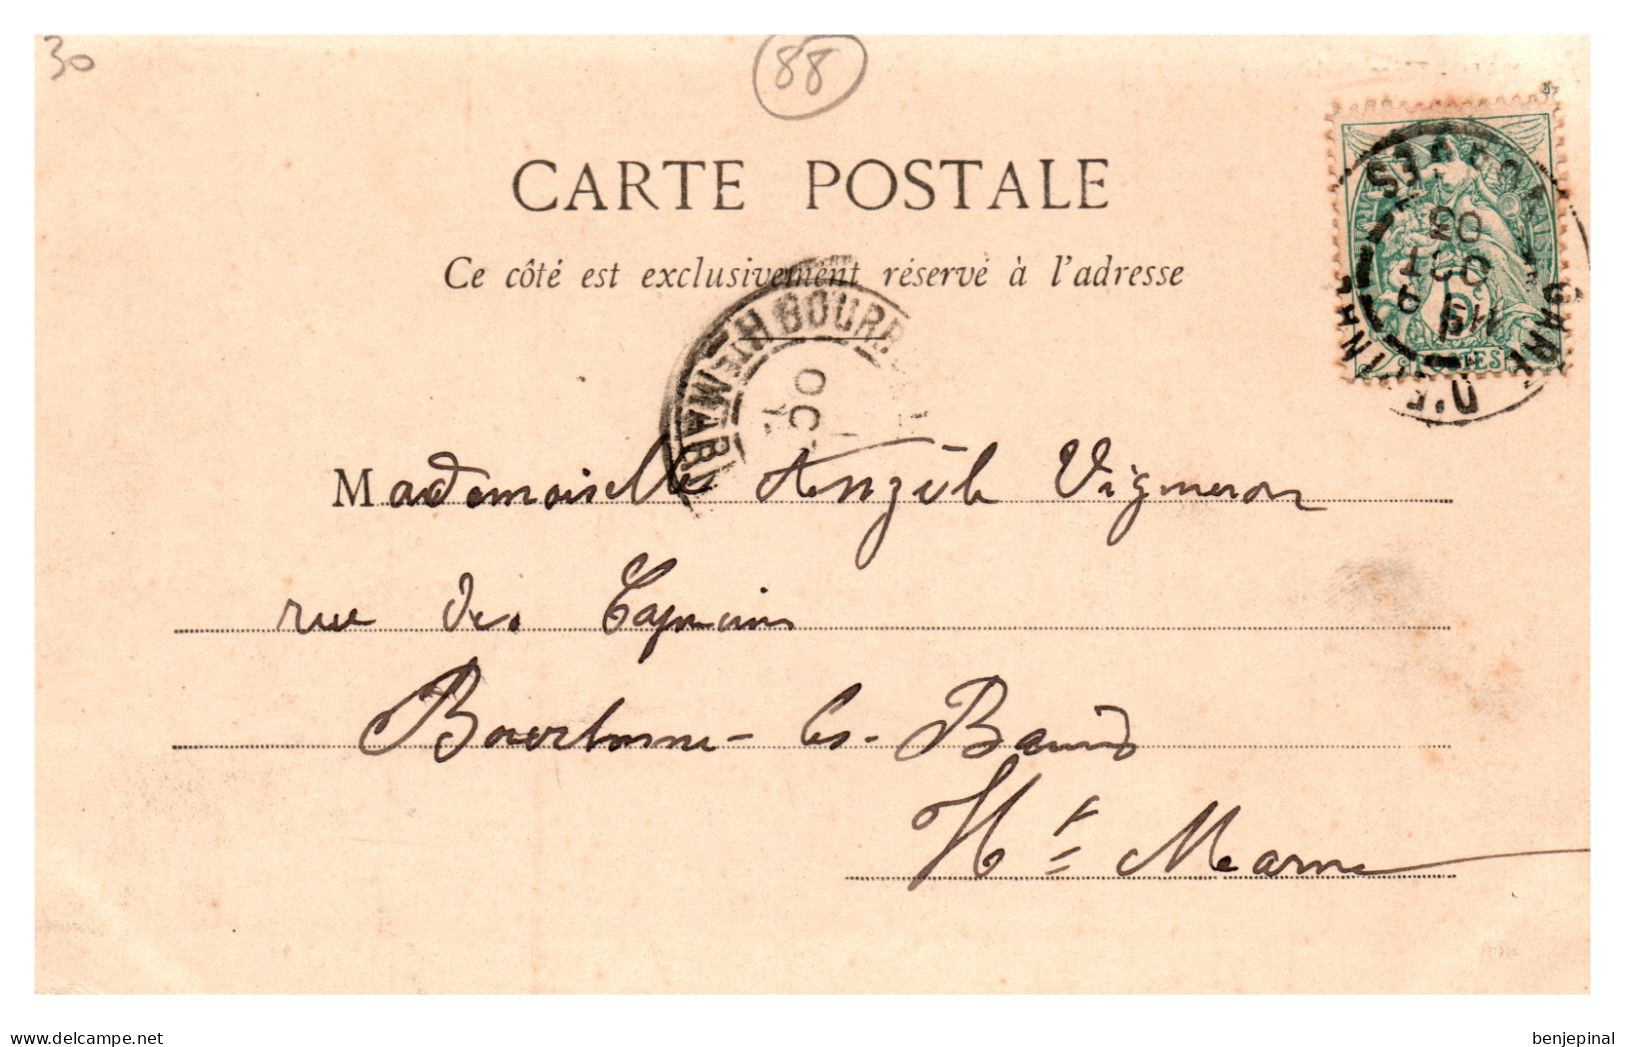 30
88
CARTE POSTALE
Ce côté est exclusivement réservé à l'adresse
GARE D'EPINAL
VOSGES
OCT
03
Hte MAR
BOURB
OC
POSTES
Mademoiselle Angèle Vigneron
rue des Capucins
Bourbonne-les-Bains
Hte Marne
www.delcampe.net
benjepinal